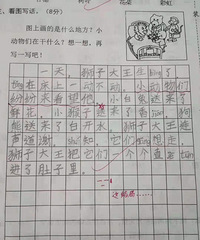 主、看图写话。(8分)
图上画的是什么地方？小
动物们在干什么？想一想，再
写一写吧！
一天，狮子大王生bìng了，
tǎng在床上一动不动。小动物们
纷纷来看望他，小白兔送来了
鲜花，小猴子送来了香jiāo，狗
熊送来了白开水。狮子大王连
声道谢，
狮子大王把它们一个个直
进了肚子里。
这结局……